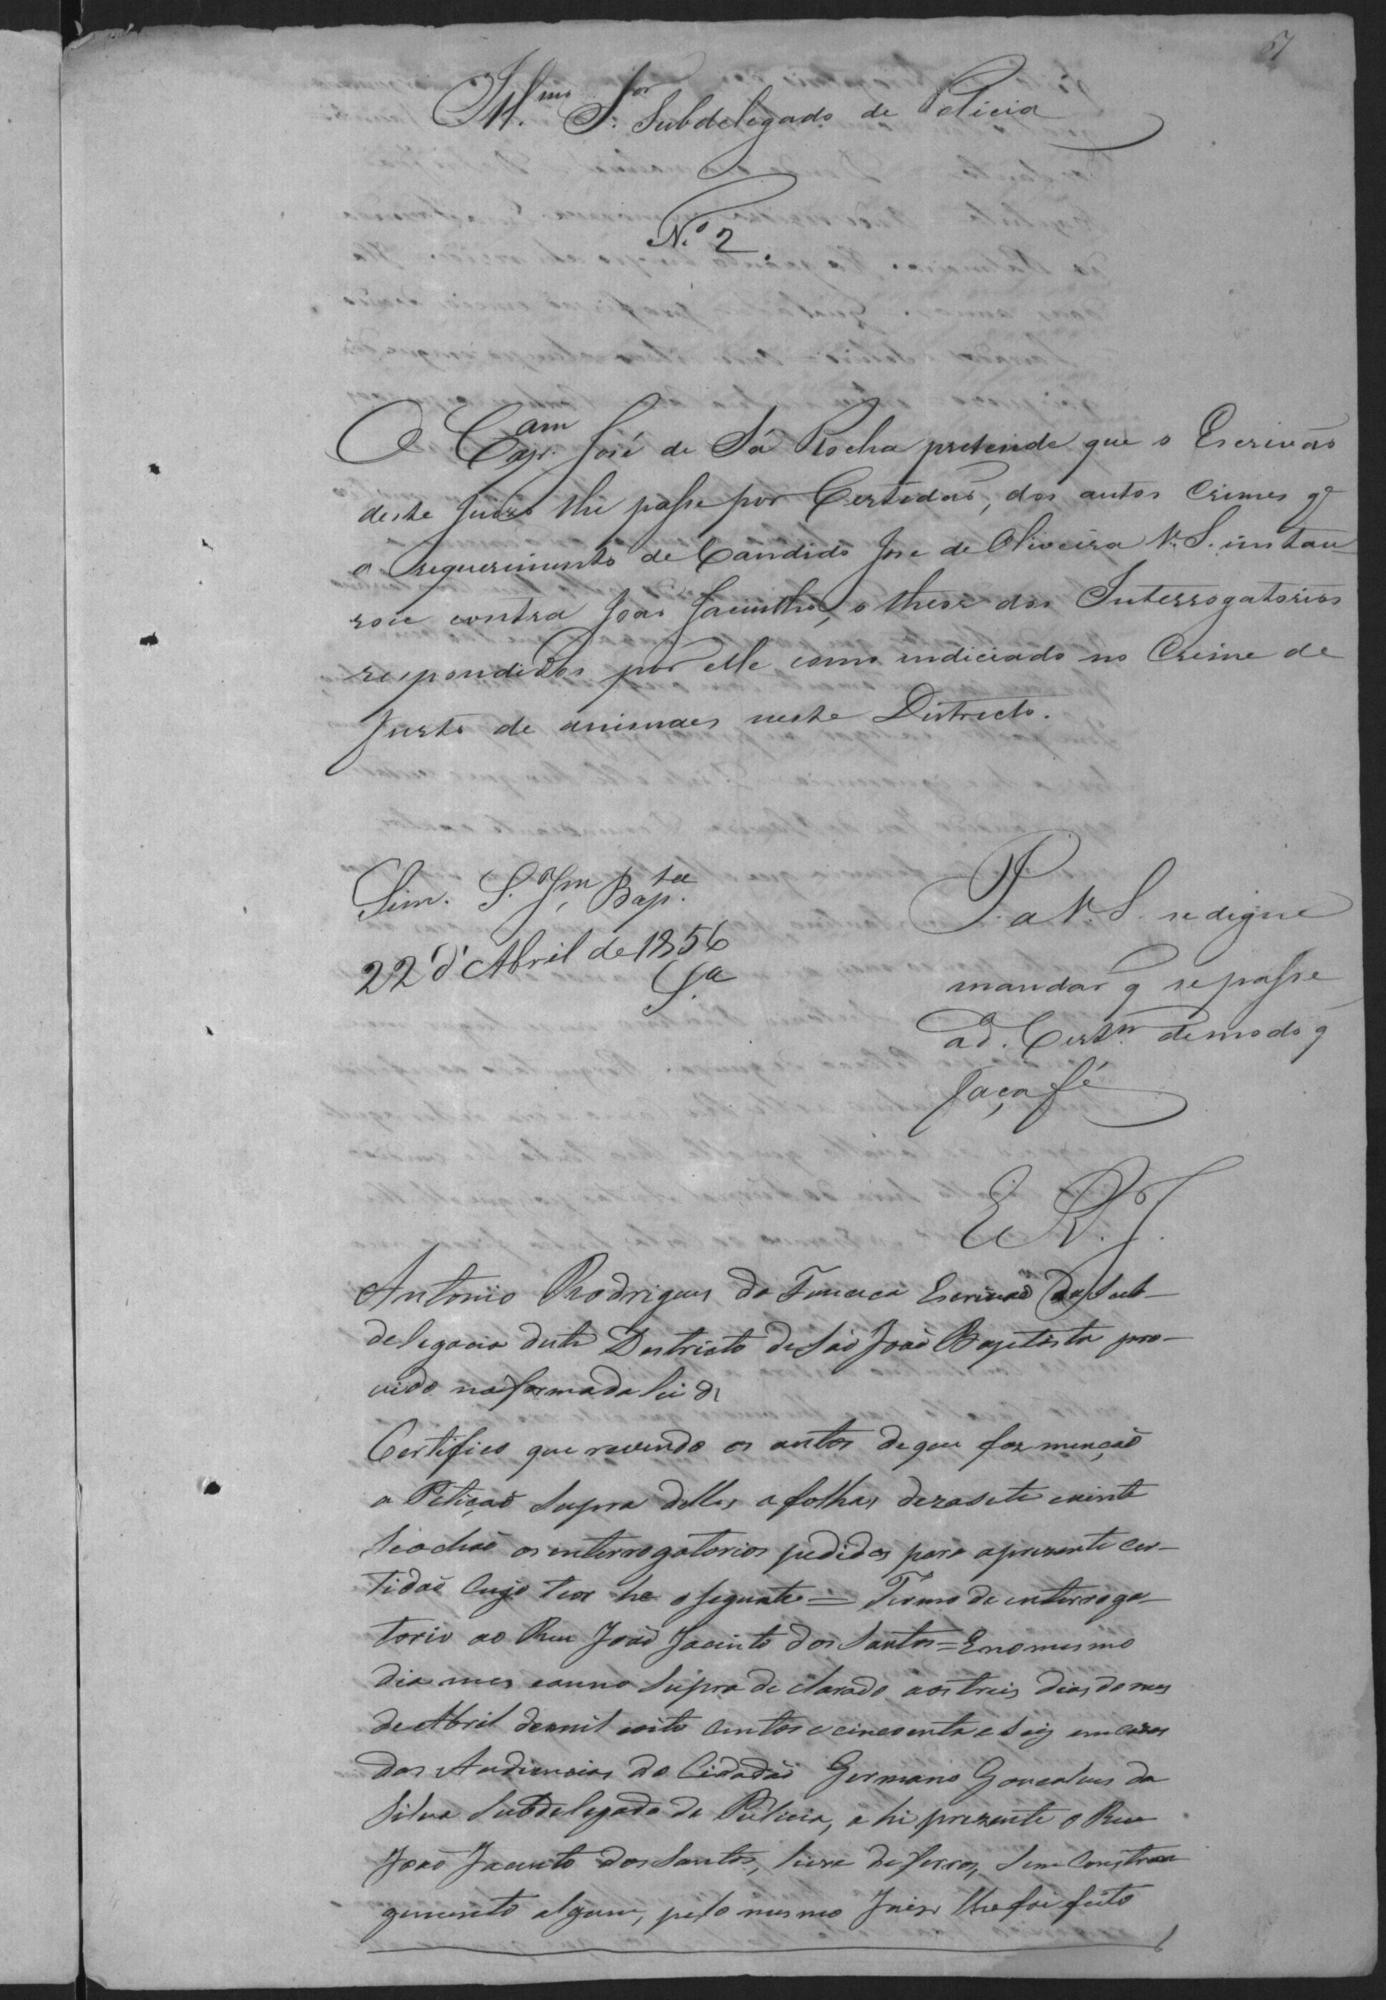 67
Illmo Sor Subdelegado de Policia
No 2.
O Capam José de Sá Rocha pretende que o Escrivão
deste Juizo lhe passe por Certidão, dos autos Crimes qe
a requerimento de Candido Jose de Oliveira V. S. instau
rou contra Joao Jacintho, o theor dos Interrogatorios
respondidos por elle como indiciado no Crime de
furto de animaes neste Districto.
Sim. S. Jm Bapta
22 d'Abril de 1856
Sa
P. a V. S. se digne
mandar q se passe
ad. Certm de modo q
faça fé
E. R. J.
Antonio Rodrigues da Fonseca Escrivão da Sub-
delegacia deste Destricto de São João Baptista pro-
vido na forma da lei &
Certifico que revendo os autos de que faz menção
a Petição supra delles a folhas dezasete evinte
se achão os interrogatorios pedidos para aprezente cer-
tidão Cujo teor he o seguinte = Termo de interroga-
torio ao Reu João Jacinto dos Santos = E no mesmo
dia mes eanno Supra declarado aos treis dias do mes
de Abril demil oito centos e cincoenta e Seis em caza
das Audiencias do Cidadão Germano Gonçalves da
Silva Subdelegado de Policia, a hi prezente o Reu
João Jacinto dos Santos, livre de ferros, Sem Constran
gimento algum, pelo mesmo Juiz lhe foi feito